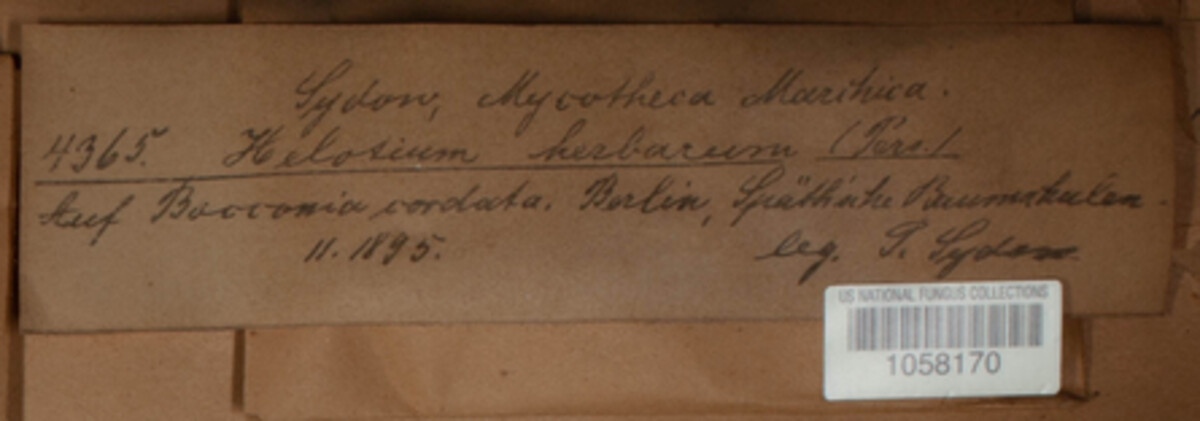 Sydow, Mycotheca Marchica.
4365. Helotium herbarum (Pers.)
Auf Bocconia cordata. Berlin, Späthsche Baumschulen.
11. 1895. leg. P. Sydow
US NATIONAL FUNGUS COLLECTIONS
1058170